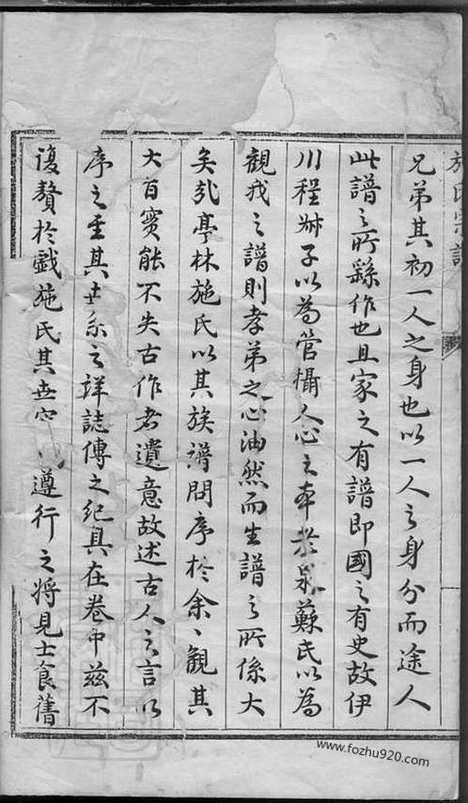 施氏宗譜
兄弟其初一人之身也以一人之身分而途人
此譜之所繇作也且家之有譜即國之有史故伊
川程叔子以為管攝人心之本老泉蘇氏以為
觀我之譜則孝弟之心油然而生譜之所係大
矣哉亭林施氏以其族譜問序於余、觀其
大旨實能不失古作者遺意故述古人之言以
序之至其世系之詳誌傳之紀具在卷中茲不
復贅於戲施氏其世守遵行之將見士食舊
www.fozhu920.com